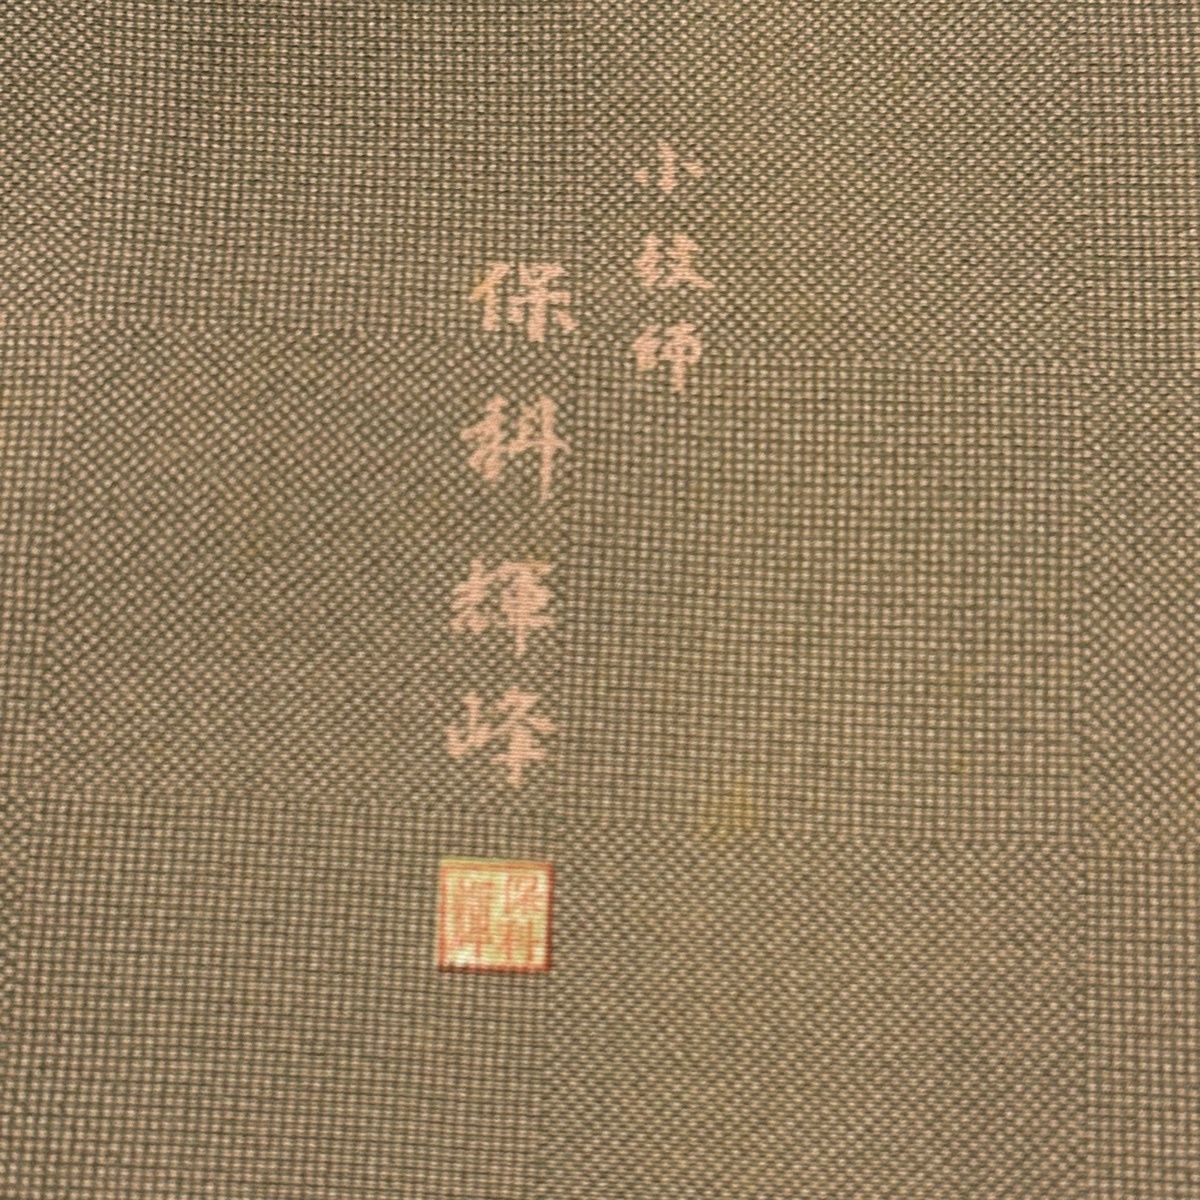 小紋師
保科輝峰